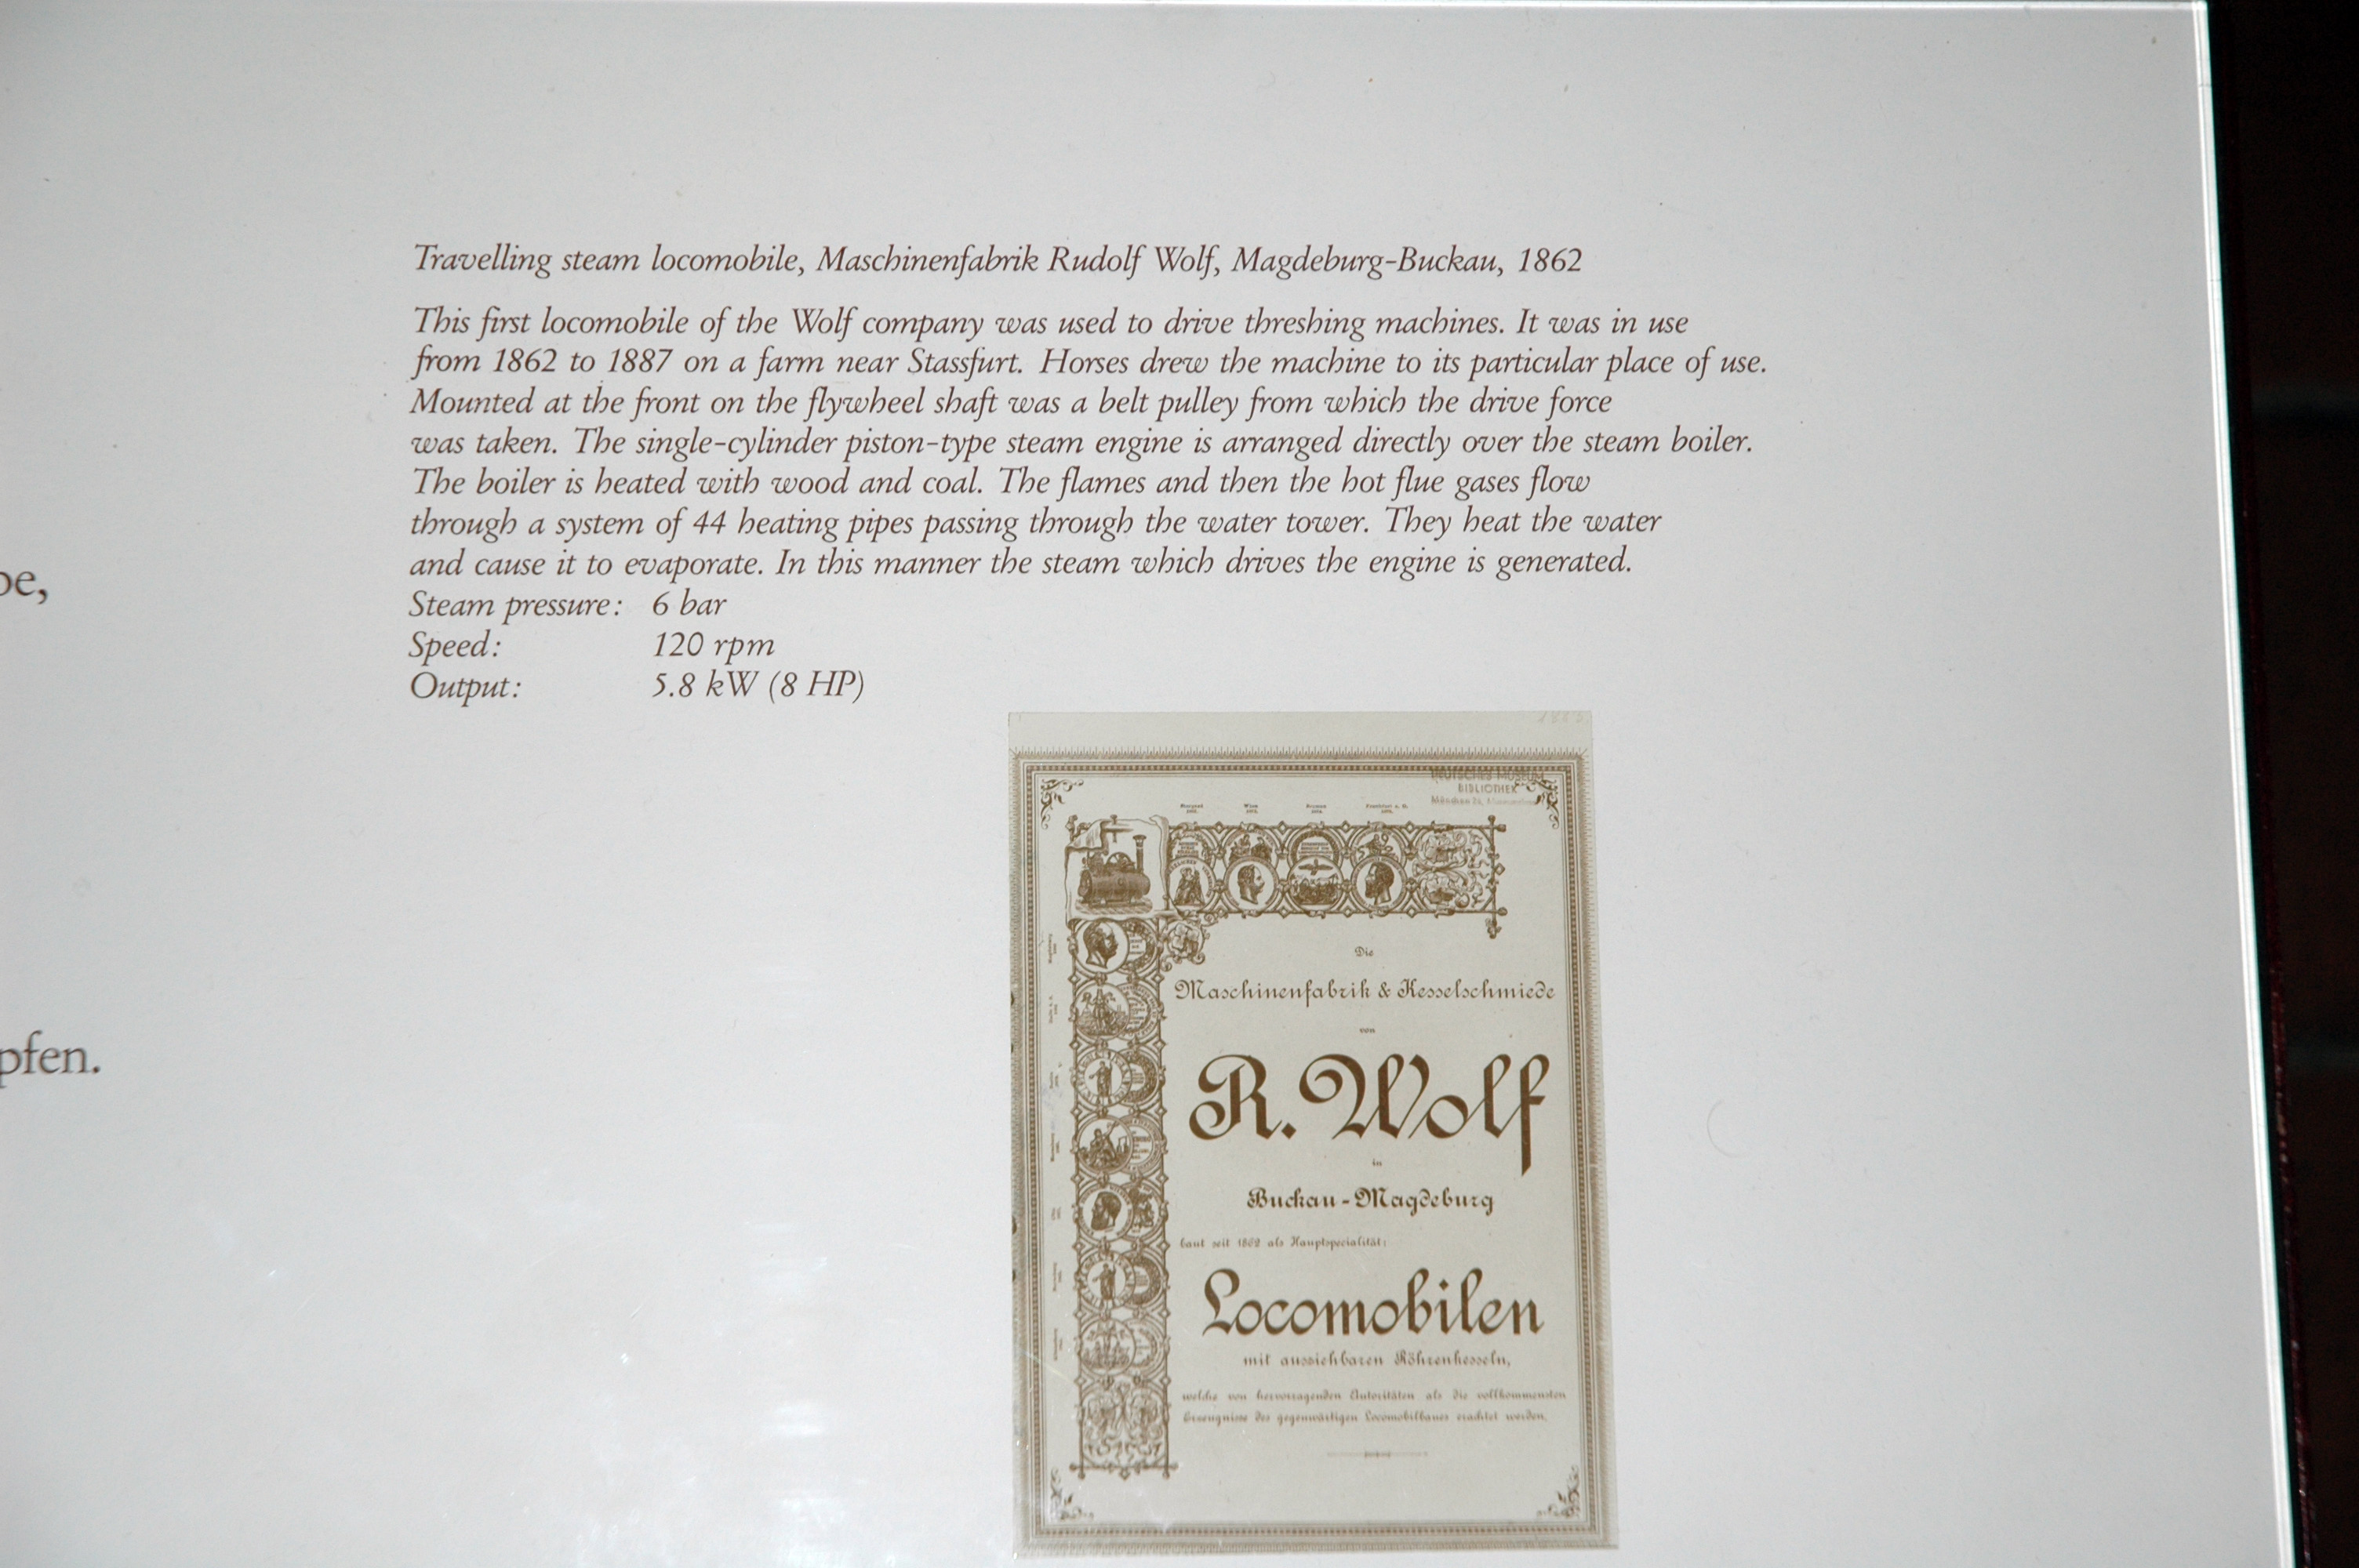 Travelling steam locomobile, Maschinenfabrik Rudolf Wolf, Magdeburg-Buckau, 1862
This first locomobile of the Wolf company was used to drive threshing machines. It was in use
from 1862 to 1887 on a farm near Stassfurt. Horses drew the machine to its particular place of use.
Mounted at the front on the flywheel shaft was a belt pulley from which the drive force
was taken. The single-cylinder piston-type steam engine is arranged directly over the steam boiler.
The boiler is heated with wood and coal. The flames and then the hot flue gases flow
through a system of 44 heating pipes passing through the water tower. They heat the water
and cause it to evaporate. In this manner the steam which drives the engine is generated.
Steam pressure: 6 bar
Speed: 120 rpm
Output: 5.8 kW (8 HP)
be,
pfen.
DEUTSCHES MUSEUM
BIBLIOTHEK
München
Die
Maschinenfabrik & Kesselschmiede
von
R. Wolf
in
Buckau-Magdeburg
baut seit 1862 als Hauptspecialität:
Locomobilen
mit ausziehbaren Röhrenkesseln,
welche von hervorragenden Autoritäten als die vollkommensten
Erzeugnisse des gegenwärtigen Locomobilbaues erachtet werden.